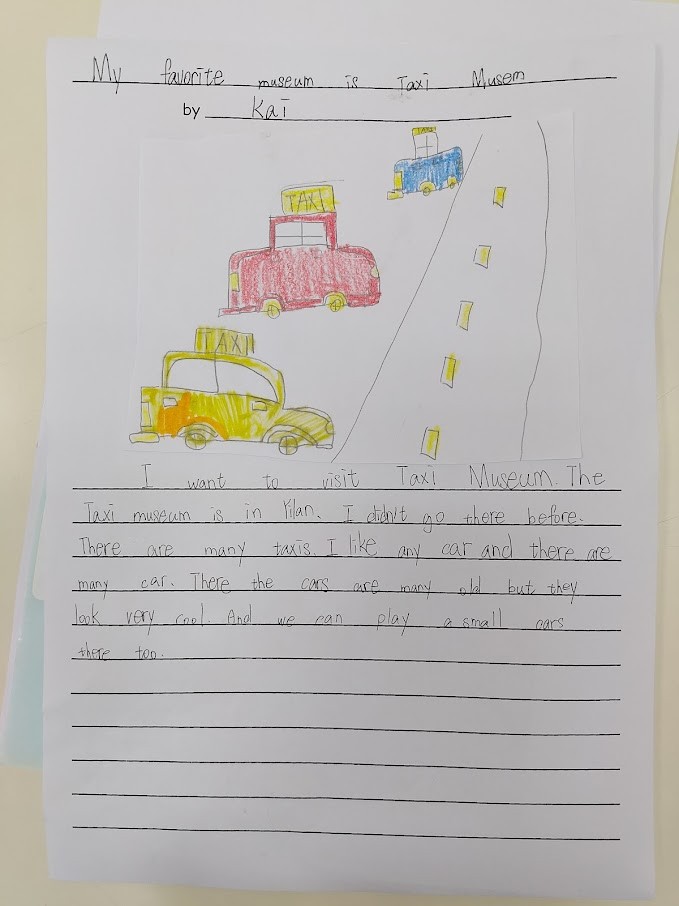 My favorite museum is Taxi Musem
by Kai
TAXI
TAXI
TAXI
I want to visit Taxi Museum. The
Taxi museum is in Yilan. I didn't go there before.
There are many taxis. I like any car and there are
many car. There the cars are many old but they
look very cool. And we can play a small cars
there too.